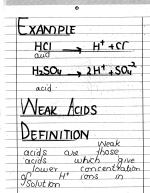 EXAMPLE
HCl → H⁺ + Cl⁻
acid
H₂SO₄ → 2H⁺ + SO₄⁻²
acid
WEAK ACIDS
DEFINITION
Weak
acids are those
acids which give
lower concentration
of H⁺ ions in
solution